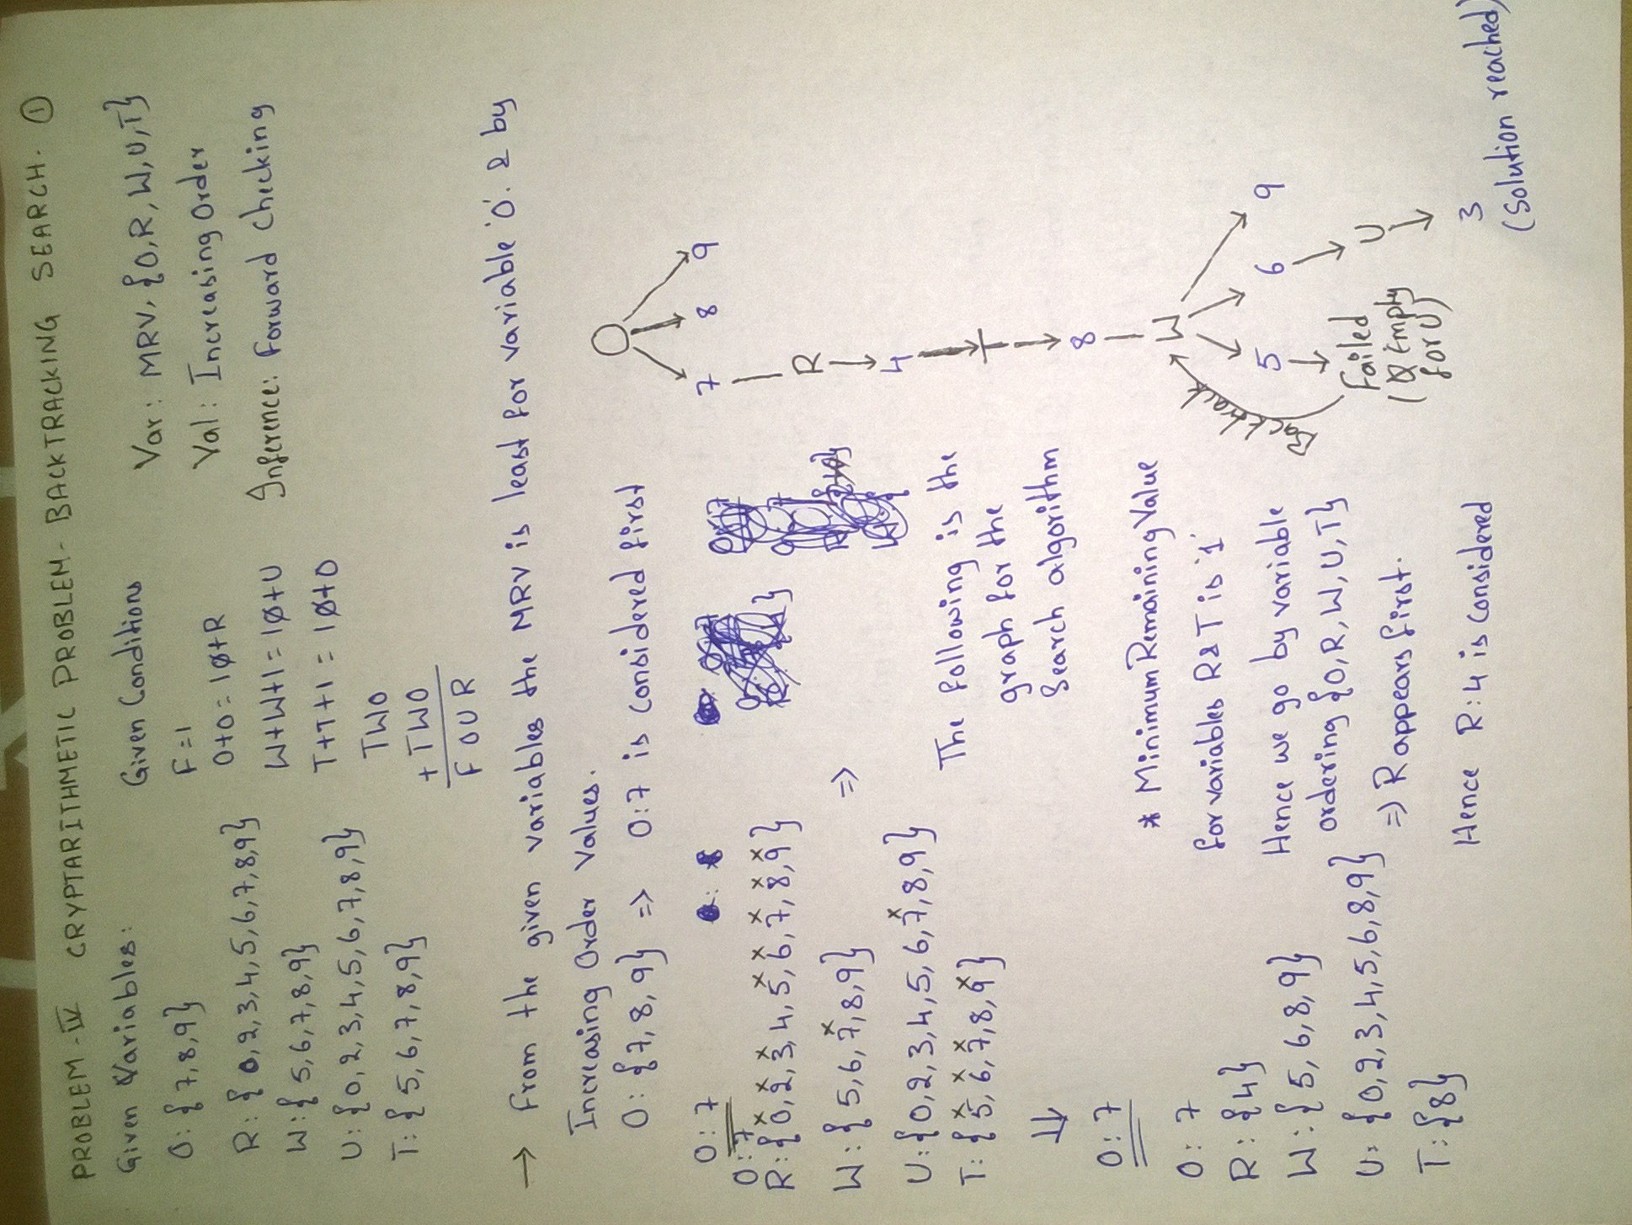 PROBLEM-IV CRYPTARITHMETIC PROBLEM- BACKTRACKING SEARCH. ①
Given Variables:
O: {7,8,9}
R: {0,2,3,4,5,6,7,8,9}
W: {5,6,7,8,9}
U: {0,2,3,4,5,6,7,8,9}
T: {5,6,7,8,9}
Given Conditions
F=1
O+O=10+R
W+W+1=10+U
T+T+1=10+O
TWO
+TWO
FOUR
Var: MRV, {O,R,W,U,T}
Val: Increasing Order
Inference: Forward Checking
→ From the given variables the MRV is least for variable 'O'. & by
Increasing Order Values.
O: {7,8,9} => O:7 is considered first
O:7
O:7
R:{0,2,3,4,5,6,7,8,9}
W:{5,6,7,8,9} =>
U:{0,2,3,4,5,6,7,8,9}
T:{5,6,7,8,9}
⇓
O:7
O:7
R:{4}
W:{5,6,8,9}
U:{0,2,3,4,5,6,8,9}
T:{8}
The following is the
graph for the
Search algorithm
* Minimum Remaining Value
for variables R&T is '1'
Hence we go by variable
ordering {O,R,W,U,T}
=> R appears first.
Hence R:4 is considered
O
7 8 9
R
4
T
8
W
Backtrack
5 6 9
Failed
(Ø Empty
for U)
U
3
(Solution reached)